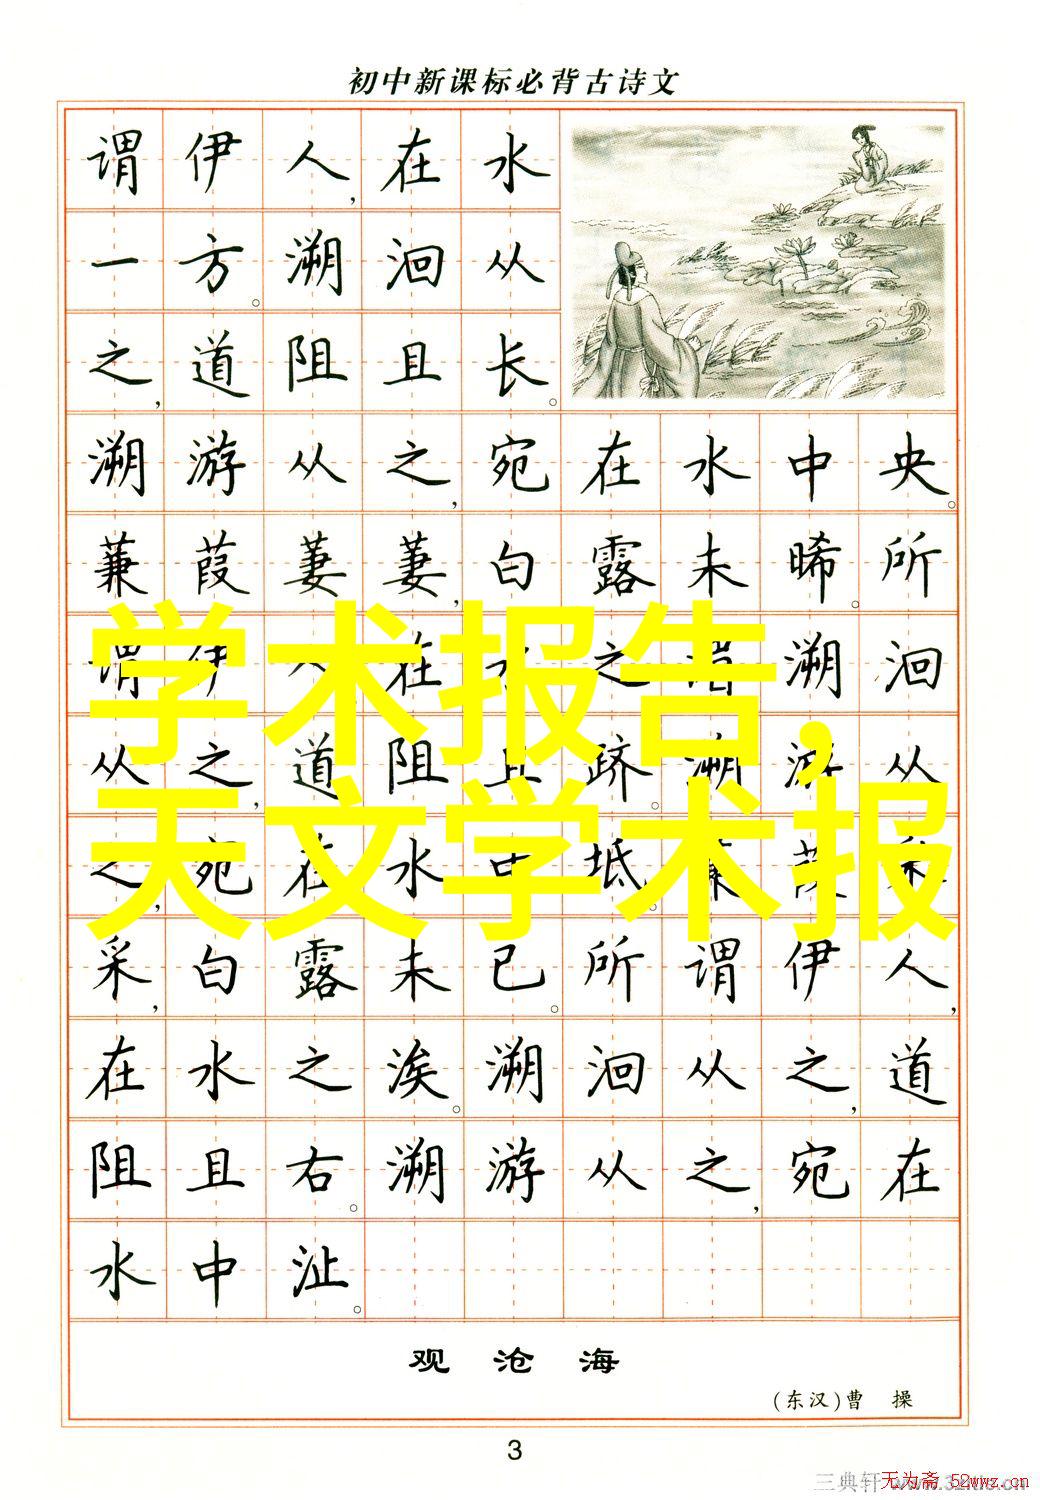 初中新课标必背古诗文
谓伊人,在水
一方。溯洄从
之,道阻且长。
溯游从之,宛在水中央。
蒹葭萋萋,白露未晞。所
谓伊人,在水之湄。溯洄
从之,道阻且跻。溯游从
之,宛在水中坻。蒹葭采
采,白露未已。所谓伊人,
在水之涘。溯洄从之,道
阻且右。溯游从之,宛在
水中沚。
学术报告,
天文学术报
观沧海
(东汉)曹操
3
三典轩
无为斋 52wwz.cn